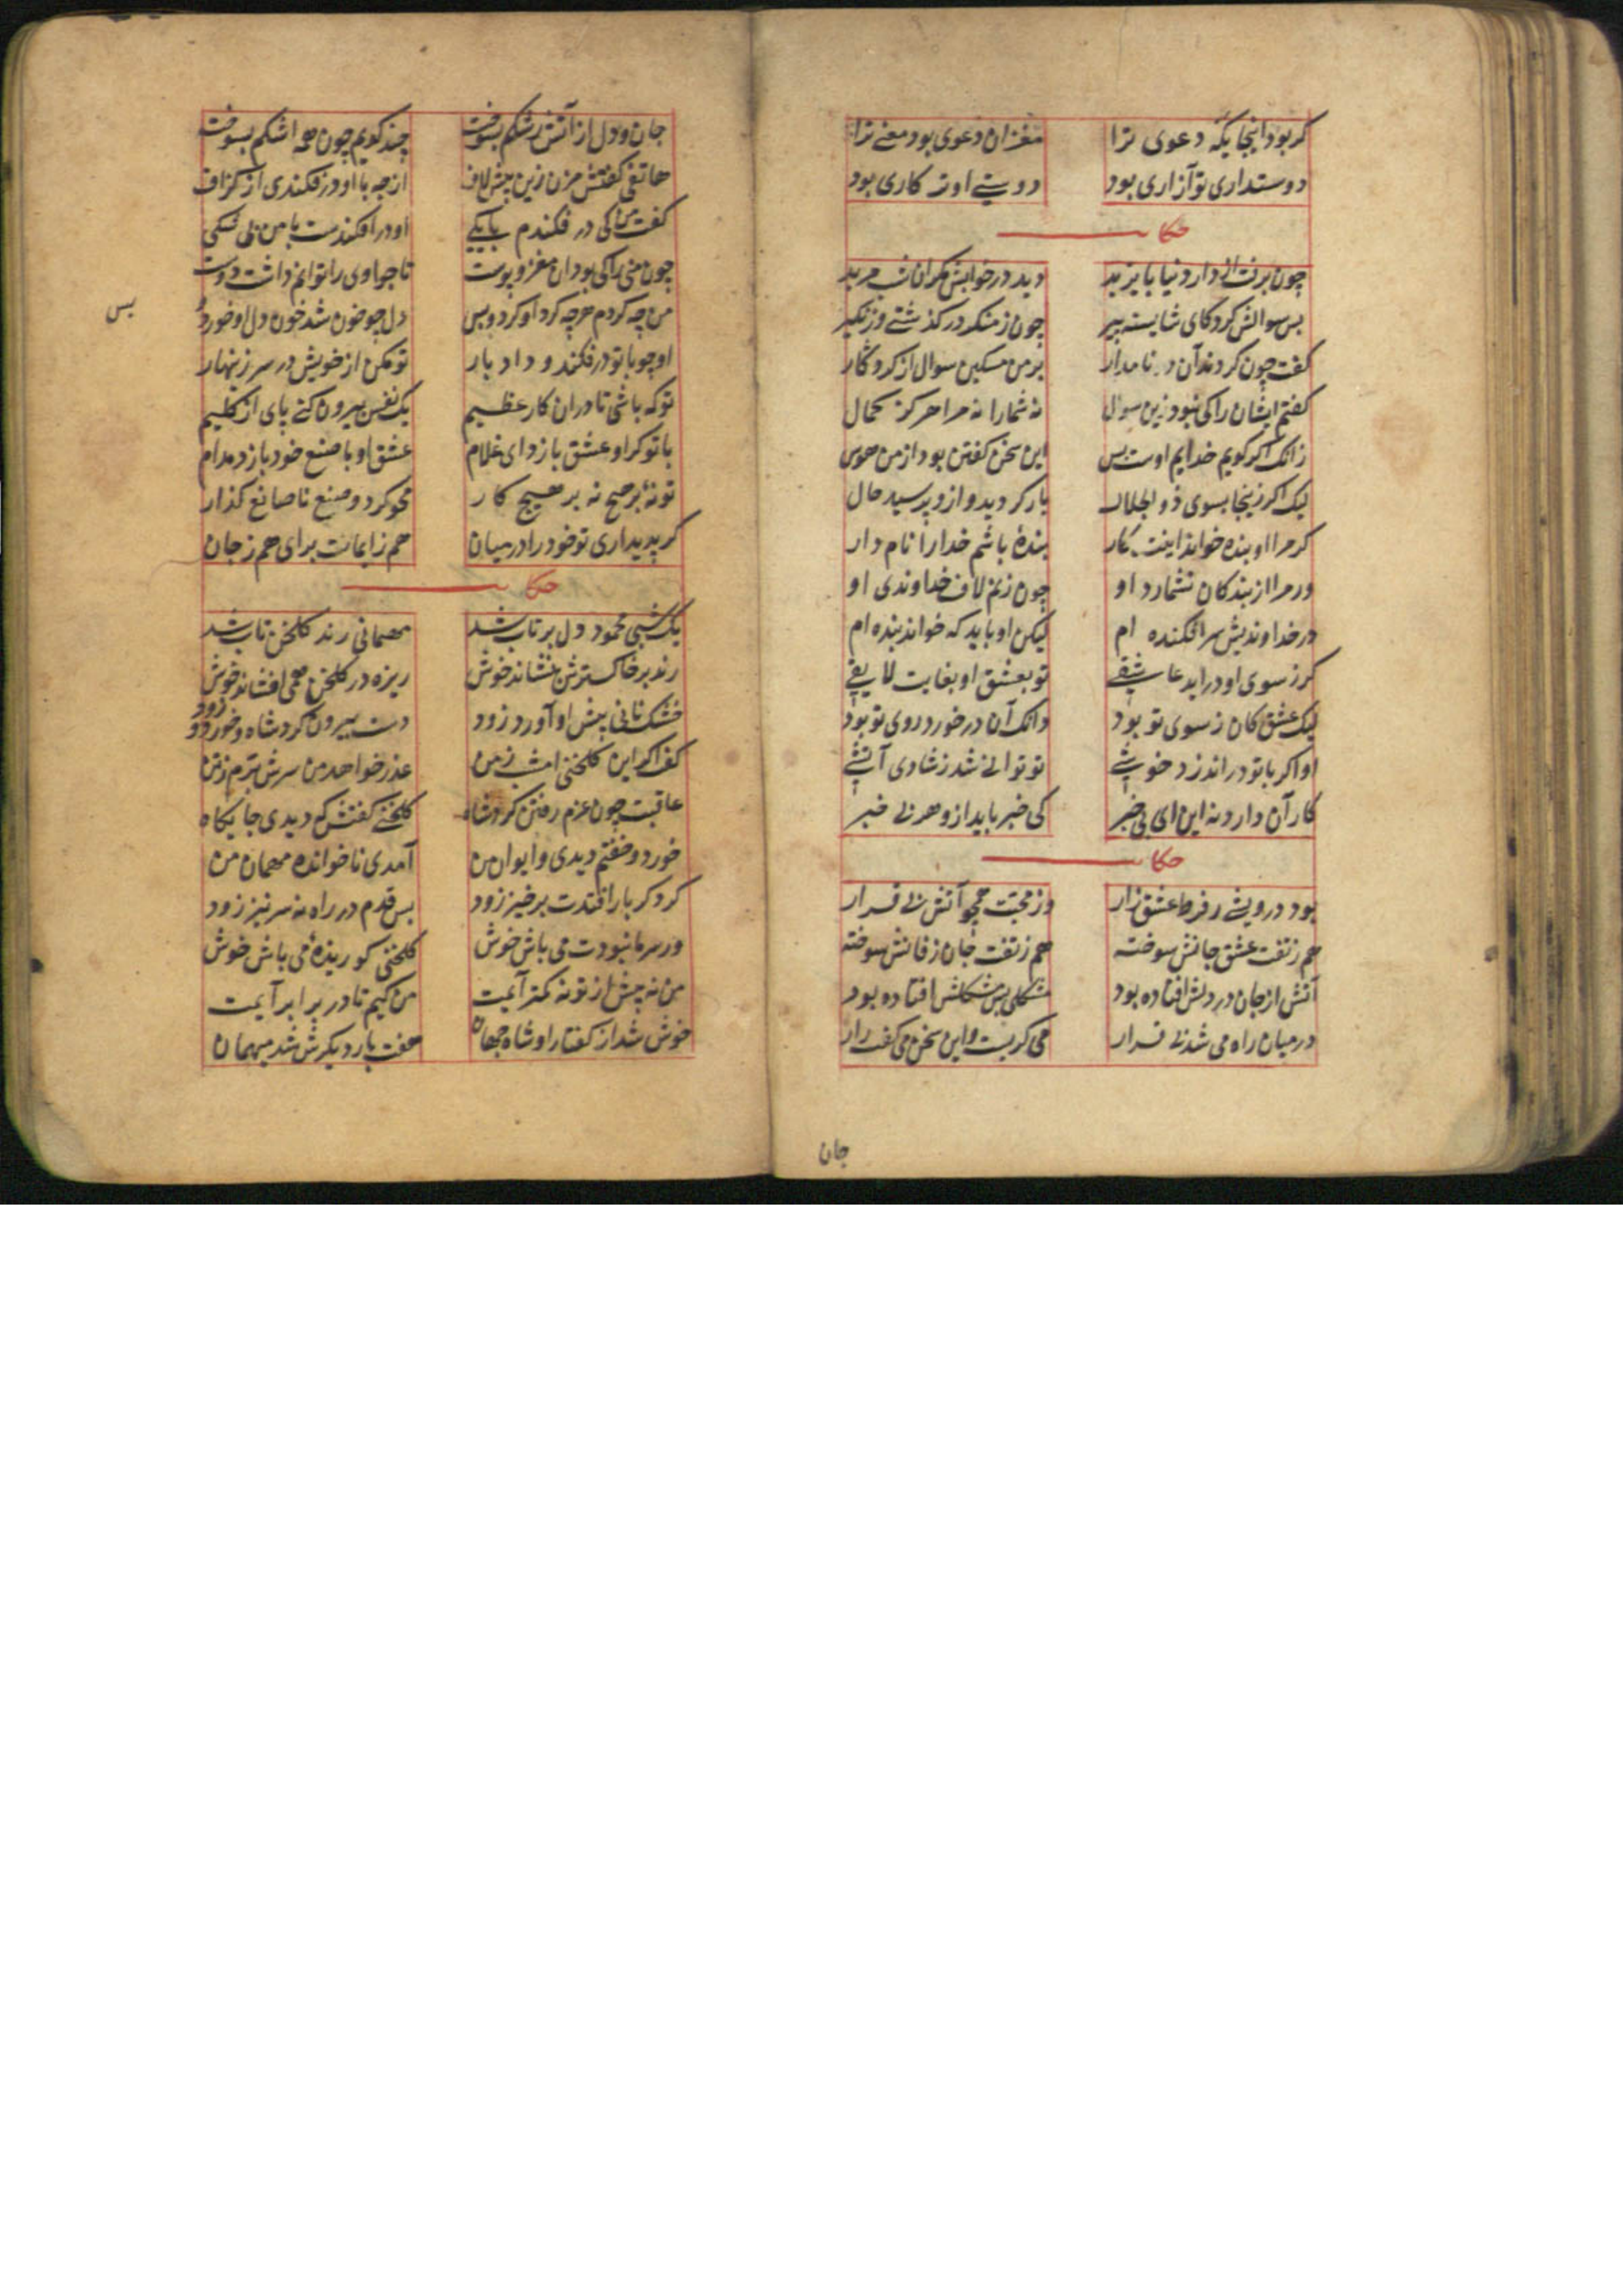 کر بود اینجایکه دعوی ترا مغز ان دعوی بود معنی ترا
دوستداری تو آزاری بود دوستی او ت کاری بود
حکایت
چون برفت از دار دنیا بایزید دید در خوابش مکر ان شب مرید
بس سوالش کرد کای شایسته پیر چون ز منکر در کذشتی وز نکیر
کفت چون کردند آن دو نامدار بر من مسکین سوال از کردکار
کفتم ایشان را کی نبود زین سوال نه شما را نه مرا هرکز کمال
زانک اکر کویم خدایم اوست بس این سخن کفتن بود از من هوس
لیک اکر زینجا بسوی ذو الجلال باز کردید و ازو پرسید حال
کر مرا او بنده خواند اینت کار بندهٔ باشم خدا را نام دار
ور مرا از بندکان نشمارد او چون زنم لاف خداوندی او
در خداوندیش سر افکنده ام لیکن او باید که خواند بنده ام
کر ز سوی او دراید عاشقی تو بعشق او بغایت لایقی
لیک عشق کان ز سوی تو بود دانک آن در خورد روی تو بود
او اکر با تو دراندازد خوشی تو توانی شد ز شادی آتشی
کار آن دارد نه این ای بی خبر کی خبر باید ازو هر بی خبر
حکایت
بود درویشی ز فرط عشق زار وز محبت همچو آتش بی قرار
هم ز تفت عشق جانش سوخته هم ز تفت جان زفانش سوخته
آتش از جان در دلش افتاده بود مشکلی بس مشکلش افتاده بود
در میان راه می شد بی قرار می کریست و این سخن می کفت زار
جان
جان و دل از آتش رشکم بسوخت چند کویم چون همه اشکم بسوخت
هاتفی کفتش مزن زین بیش لاف از چه با او در فکندی از کزاف
کفت من کی در فکندم با یکی او در افکندست با من بی شکی
چون منی را کی بود ان مغز و پوست تا چو اوی را توانم داشت دوست
من چه کردم هرچه کرد او کرد و بس دل چو خون شد خون دل او خورد و
بس
او چو با تو در فکند و داد بار تو مکن از خویش در سر زینهار
تو که باشی تا دران کار عظیم یک نفس بیرون کنی پای از کلیم
با تو کر او عشق بازد ای غلام عشق او با صنع خود بازد مدام
تو نهٔ بر هیچ نه بر هیچ کار محو کرد و صنع با صانع کذار
کر پدید اری تو خود را در میان هم ز ایمانت برای هم ز جان
حکایت
یک شبی محمود دل برتاب شد مهمانی رند کلخن تاب شد
رند بر خاکسترش بنشاند خوش ریزه در کلخن همی افشاند خوش
خشک نانی پیش او آورد زود دست بیرون کرد شاه و خورد زود
کفت اکر این کلخنی امشب ز من عذر خواهد من سرش برم ز تن
عاقبت چون عزم رفتن کرد شاه کلخنی کفتش که دیدی جایکاه
خورد و خفتم دیدی و ایوان من آمدی ناخوانده مهمان من
کر دکر بار افتدت برخیز زود بس قدم در راه نه سر تیز زود
ور سر ما نبودت می باش خوش کلخنی کو ریزهٔ می باش خوش
من نه بیش از تو نه کمتر آیمت من کیم تا در برابر آیمت
خوش شد از کفتار او شاه جهان هفت بار دیکرش شد میهمان